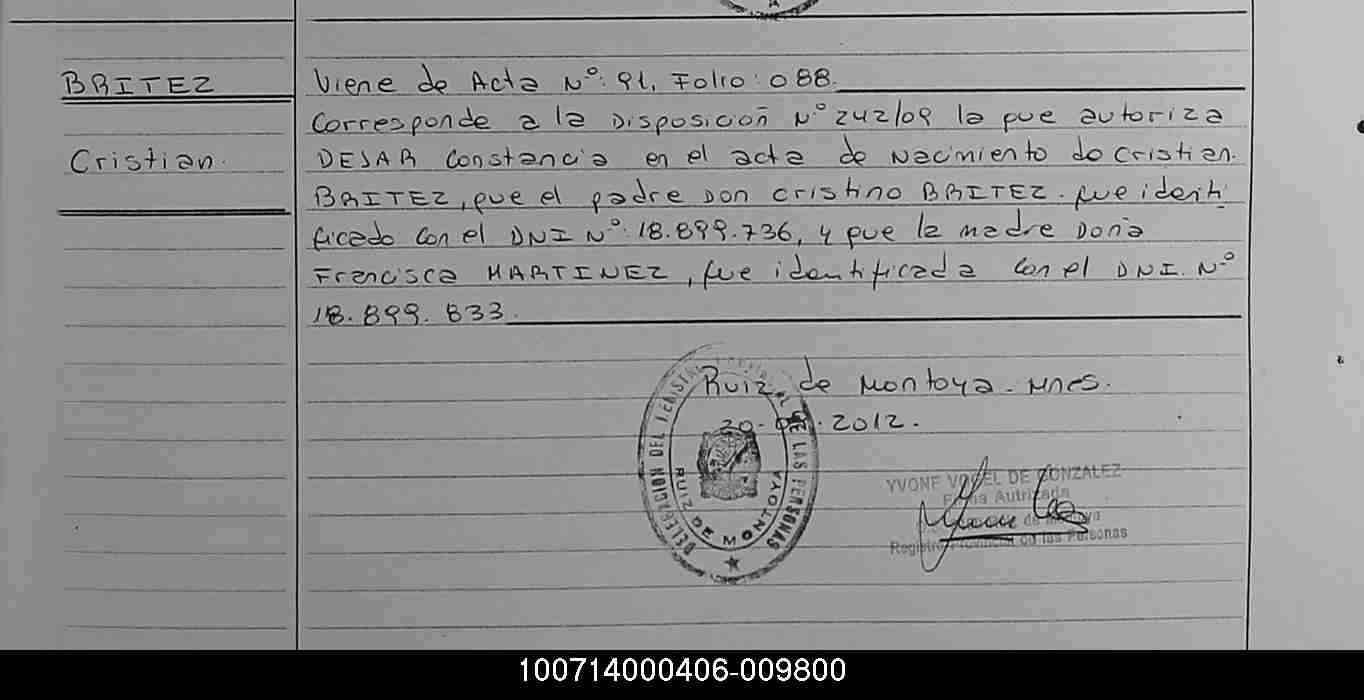 BRITEZ
Cristian.
Viene de Acta Nº: 91, Folio: 088.
Corresponde a la Disposición Nº 242/09 la que autoriza
DEJAR Constancia en el acta de Nacimiento de Cristian.
BRITEZ, que el padre Don Cristino BRITEZ. fue identi
ficado con el DNI Nº: 18.899.736, y que la madre Doña
Francisca MARTINEZ, fue identificada con el DNI. Nº
18.899.833.
Ruiz de Montoya - Mnes.
20- . 2012.
DELEGACION DEL REGISTRO PROVINCIAL DE LAS PERSONAS
RUIZ DE MONTOYA
YVONE VOGEL DE GONZALEZ
Firma Autrizada
de Montoya
Registro Provincial de las Personas
100714000406-009800